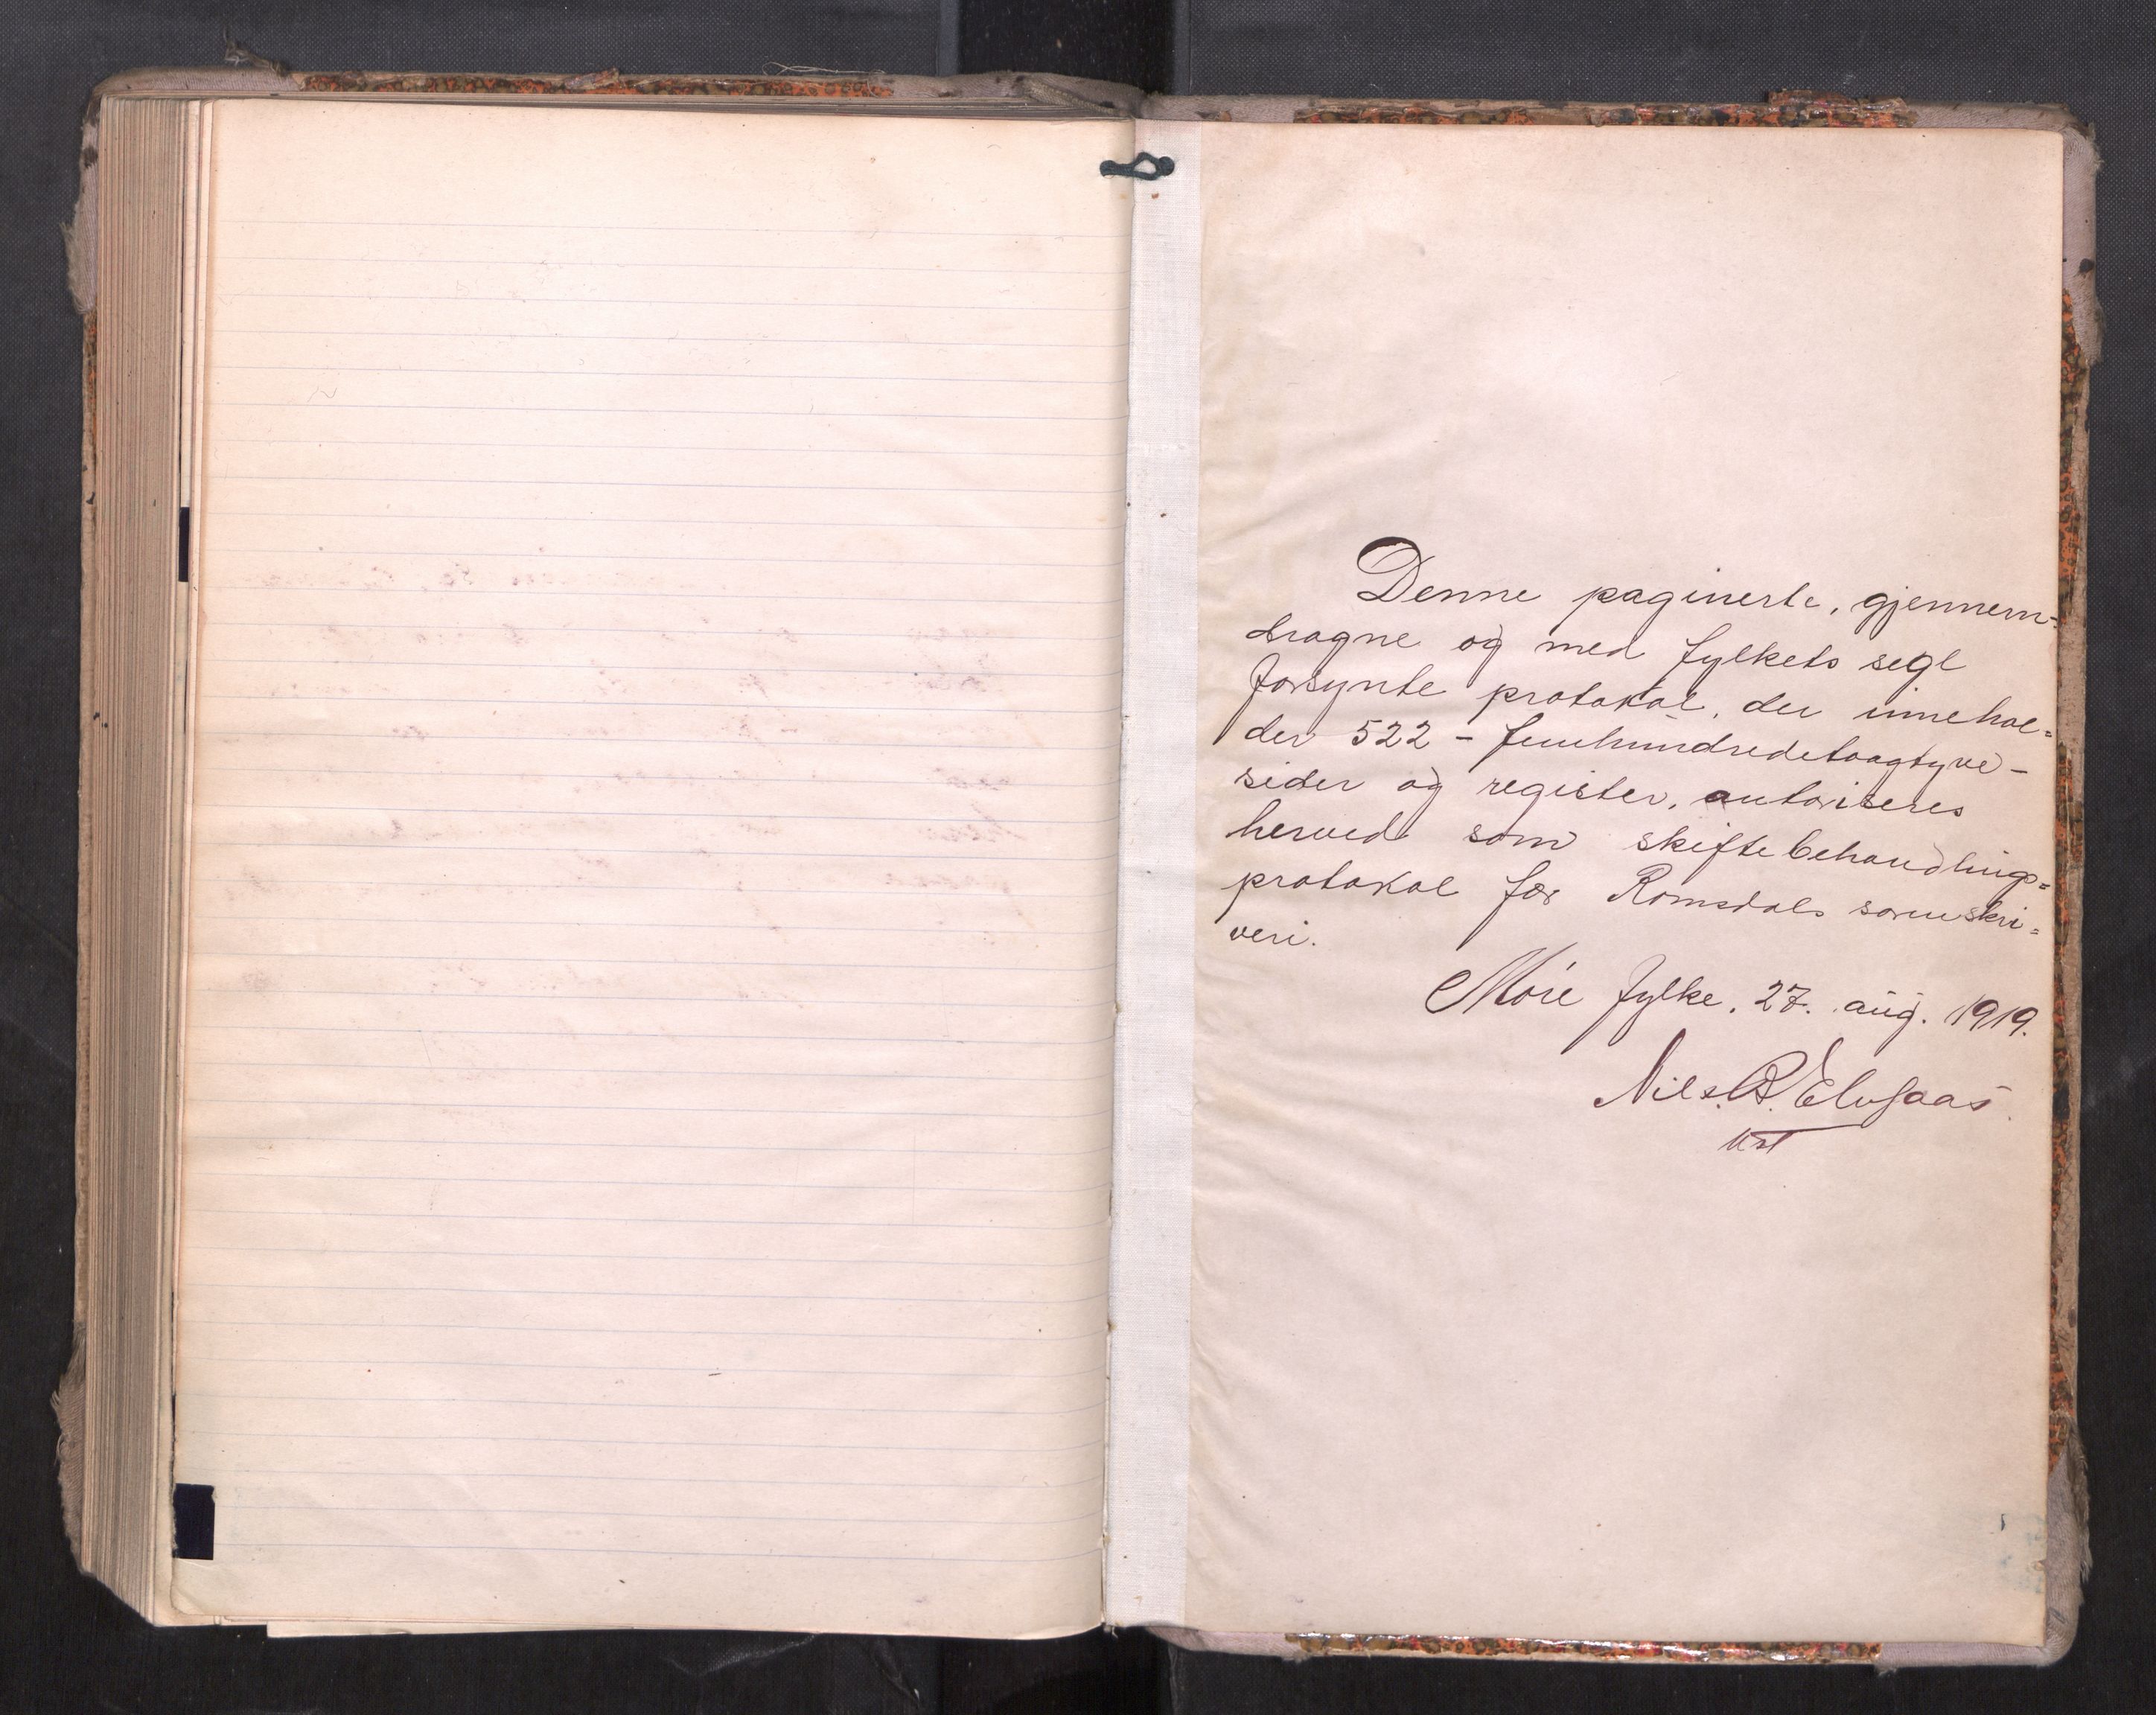 Denne paginerte, gjennem-
dragne og med fylkets segl
forsynte protokol, der innehol=
der 522 - femhundredetoogtyve -
sider og register, autoriseres
herved som skiftebehandlings=
protokol for Romsdals sorenskri=
veri.
Møre fylke, 27. aug. 1919.
Nils
kst